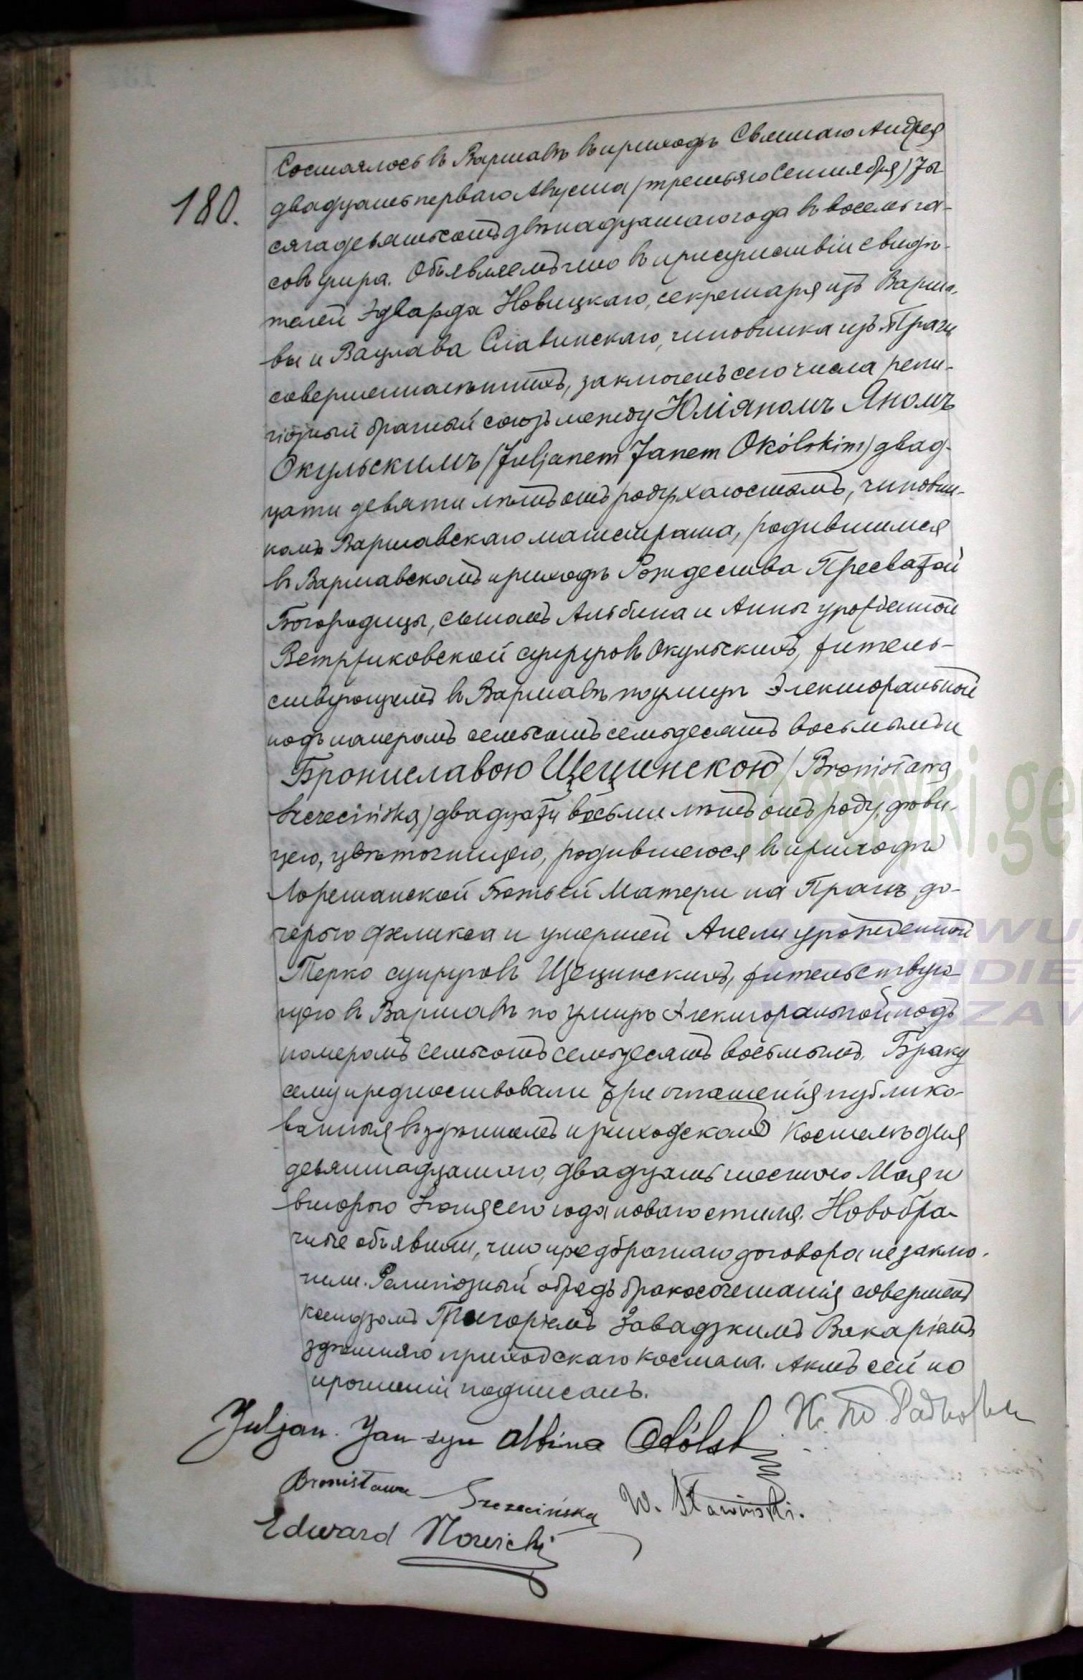 180.
Состоялось въ Варшавѣ въ приходѣ Святаго Андрея
двадцать перваго Августа /третьяго Сентября/ Ты-
сяча девятьсотъ двѣнадцатаго года въ восемь ча-
совъ утра. Объявляемъ что въ присутствіи свидѣ-
телей Эдварда Новицкаго, секретаря изъ Варша-
вы и Вацлава Славинскаго, чиновника изъ Праги
совершеннолѣтнихъ, заключенъ сего числа рели-
гіозный брачный союзъ между Юліяномъ Яномъ
Окульскимъ /Juljanem Janem Okólskim/ двад-
цати девяти лѣтъ отъ роду, холостомъ, чиновни-
комъ Варшавскаго магистрата, родившимся
въ Варшавскомъ приходѣ Рождества Пресвятой
Богородицы, сыномъ Альбина и Анны урожденной
супруговъ Окульскихъ, житель-
ствующимъ въ Варшавѣ по улицѣ Электоральной
подъ номеромъ семьсотъ семьдесятъ восьмымъ и
Брониславою Щецинскою /Bronisława
Szczecińska/ двадцати восьми лѣтъ отъ роду, дѣви-
цею, цвѣточницею, родившеюся въ приходѣ
Лоретанской Божьей Матери на Прагѣ, до-
черью Феликса и умершей Анели урожденной
Терко супруговъ Щецинскихъ, жительствую-
щею въ Варшавѣ по улицѣ Электоральной подъ
номеромъ семьсотъ семьдесятъ восьмымъ. Браку
сему предшествовали три оглашенія публико-
ванныя въ здѣшнемъ приходскомъ Костелѣ дня
девятнадцатаго, двадцать шестого Мая и
второго Іюня сего года новаго стиля. Новобра-
чные объявили, что предбрачнаго договора не заклю-
чили. Религіозный обрядъ бракосочетанія совершенъ
ксендзомъ Григоріемъ Завадзкимъ Викаріемъ
здѣшняго приходскаго Костела. Актъ сей по
прочтеніи подписанъ.
Juljan Jan syn Albina Okólski
Bronisława Szczecińska W. Sławiński.
Edward Nowicki